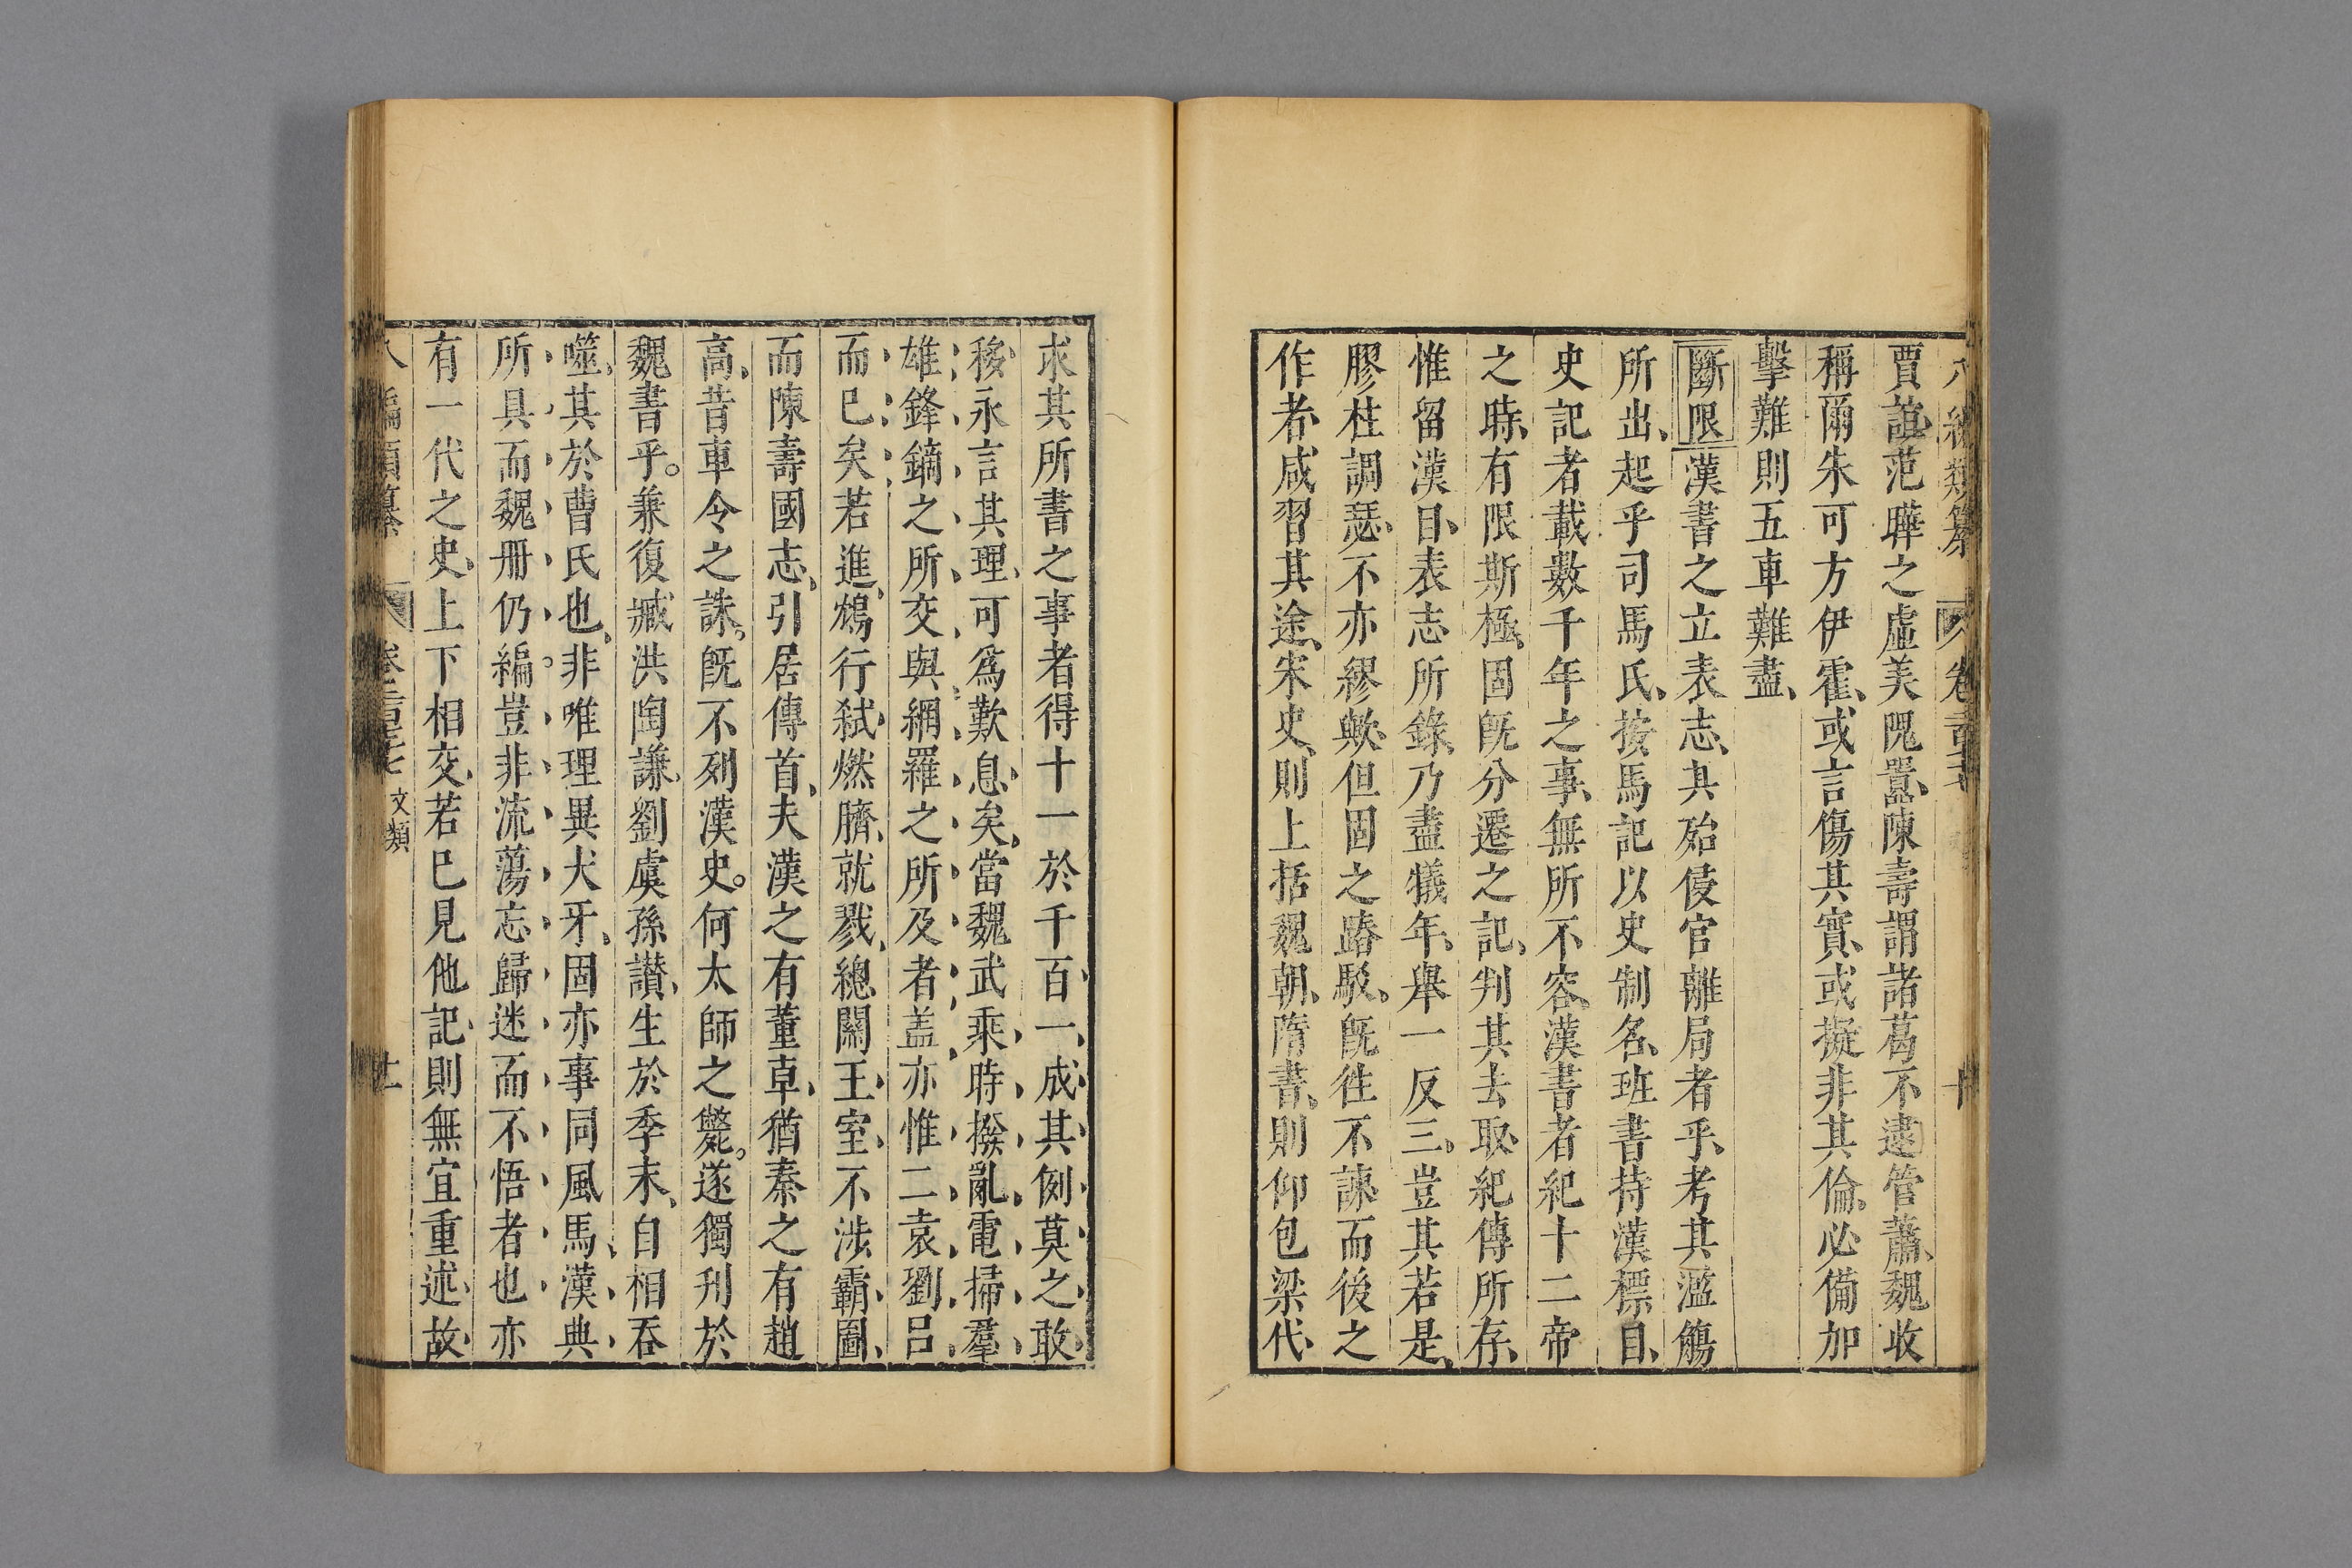 賈誼、范曄之虛美隗囂、陳壽謂諸葛不逮管蕭、魏收
稱爾朱可方伊霍、或言傷其實、或擬非其倫。必備加
擊難則五車難盡、
斷限 漢書之立表志、其殆侵官離局者乎、考其濫觴
所出、起乎司馬氏、按馬記以史制名、班書持漢標目、
史記者載數千年之事、無所不容、漢書者紀十二帝
之時、有限斯極、固旣分遷之記、判其去取、紀傳所存、
惟留漢日、表志所錄、乃盡犧年、舉一反三。豈其若是、
膠柱調瑟、不亦繆歟、但固之踳駁。旣徃不諫而後之
作者、咸習其途、宋史、則上括魏朝、隋書、則仰包梁代、
求其所書之事者得十一於千百、一、成其例莫之敢
移、永言其理、可爲歎息矣。當魏武乘時撥亂、電掃羣
雄、鋒鏑之所交、與網羅之所及者、盖亦惟二袁劉呂
而巳矣、若進鴆行弒、燃臍就戮、總關王室、不涉霸圖、
而陳壽國志、引居傳首、夫漢之有董卓、猶秦之有趙
高、昔車令之誅。旣不列漢史。何太師之斃。遂獨刋於
魏書乎。兼復臧洪陶謙、劉虞孫讃、生於季末、自相吞
噬、其於曹氏也、非唯理異犬牙、固亦事同風馬、漢典
所具而魏册仍編。豈非流蕩忘歸迷而不悟者也亦
有一代之史、上下相交、若巳見他記、則無宜重述、故
八編類纂 文類